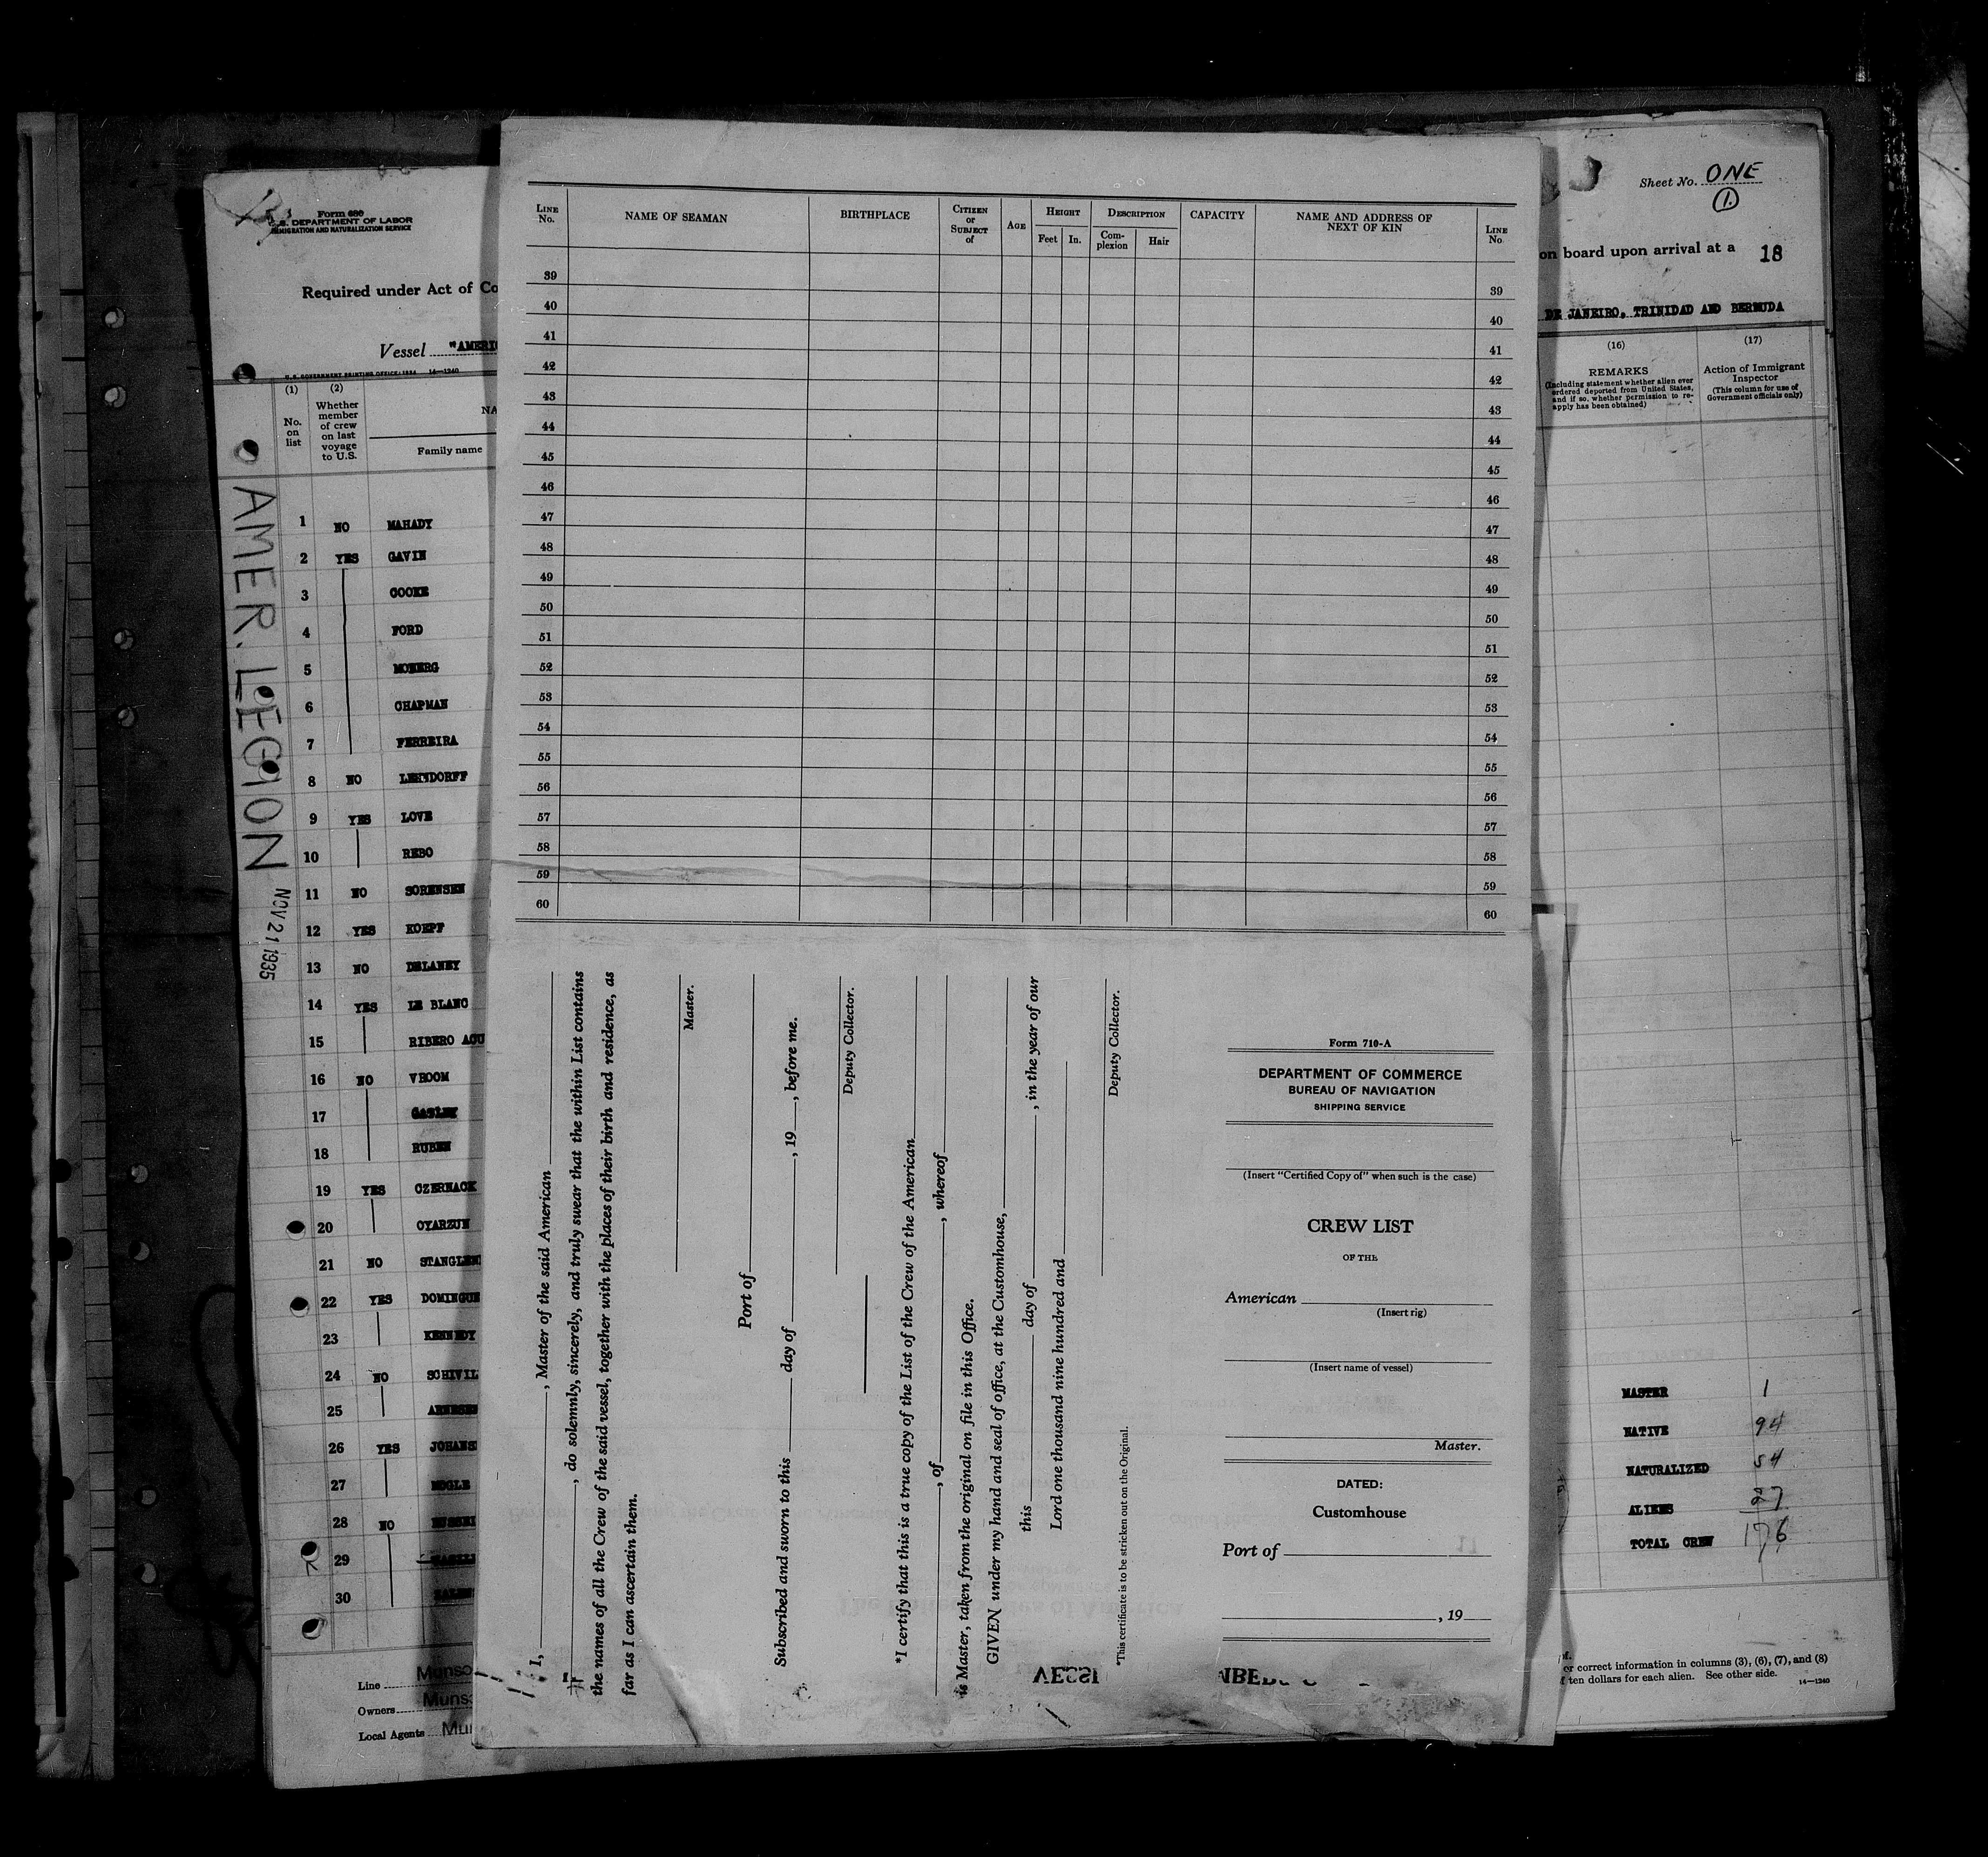 Form 680
U.S. DEPARTMENT OF LABOR
IMMIGRATION AND NATURALIZATION SERVICE
Required under Act of Co
Vessel "AMERIC
U.S. GOVERNMENT PRINTING OFFICE: 1934 14—1240
(1) (2)
No. on list
Whether member of crew on last voyage to U.S.
NA
Family name
AMER. LEGION
NOV 21 1935
1 NO MAHADY
2 YES GAVIN
3 COOKE
4 FORD
5 MOBERG
6 CHAPMAN
7 FERREIRA
8 NO LEHNDORFF
9 YES LOVE
10 REBO
11 NO SORENSEN
12 YES KOEPF
13 NO DELANEY
14 YES LE BLANC
15 RIBERO AGU
16 NO VROOM
17 GASLEY
18 RUBEN
19 YES CZERNACK
20 OYARZUN
21 NO STANGLEN
22 YES DOMINGUE
23 KENNEDY
24 NO SCHIVIL
25
26 YES JOHANS
27 MOGLE
28 NO
29
30
Line Munso
Owners Munso
Local Agents Mun
LINE No. NAME OF SEAMAN BIRTHPLACE CITIZEN or SUBJECT of AGE HEIGHT DESCRIPTION CAPACITY NAME AND ADDRESS OF NEXT OF KIN LINE No.
Feet In. Complexion Hair
39 39
40 40
41 41
42 42
43 43
44 44
45 45
46 46
47 47
48 48
49 49
50 50
51 51
52 52
53 53
54 54
55 55
56 56
57 57
58 58
59 59
60 60
I, , Master of the said American
, do solemnly, sincerely, and truly swear that the within List contains
the names of all the Crew of the said vessel, together with the places of their birth and residence, as
far as I can ascertain them.
Master.
Port of
Subscribed and sworn to this day of , 19 , before me.
Deputy Collector.
*I certify that this is a true copy of the List of the Crew of the American
, of , whereof
is Master, taken from the original on file in this Office.
GIVEN under my hand and seal of office, at the Customhouse,
this day of , in the year of our
Lord one thousand nine hundred and
Deputy Collector.
*This certificate is to be stricken out on the Original.
Form 710-A
DEPARTMENT OF COMMERCE
BUREAU OF NAVIGATION
SHIPPING SERVICE
(Insert "Certified Copy of" when such is the case)
CREW LIST
OF THE
American
(Insert rig)
(Insert name of vessel)
Master.
DATED:
Customhouse
Port of
, 19
Sheet No. ONE
1.
on board upon arrival at a 18
DE JANEIRO, TRINIDAD AND BERMUDA
(16) (17)
REMARKS
(Including statement whether alien ever ordered deported from United States, and if so, whether permission to re-apply has been obtained)
Action of Immigrant Inspector
(This column for use of Government officials only)
MASTER 1
NATIVE 94
NATURALIZED 54
ALIENS 27
TOTAL CREW 176
of.
or correct information in columns (3), (6), (7), and (8)
f ten dollars for each alien. See other side.
14—1240